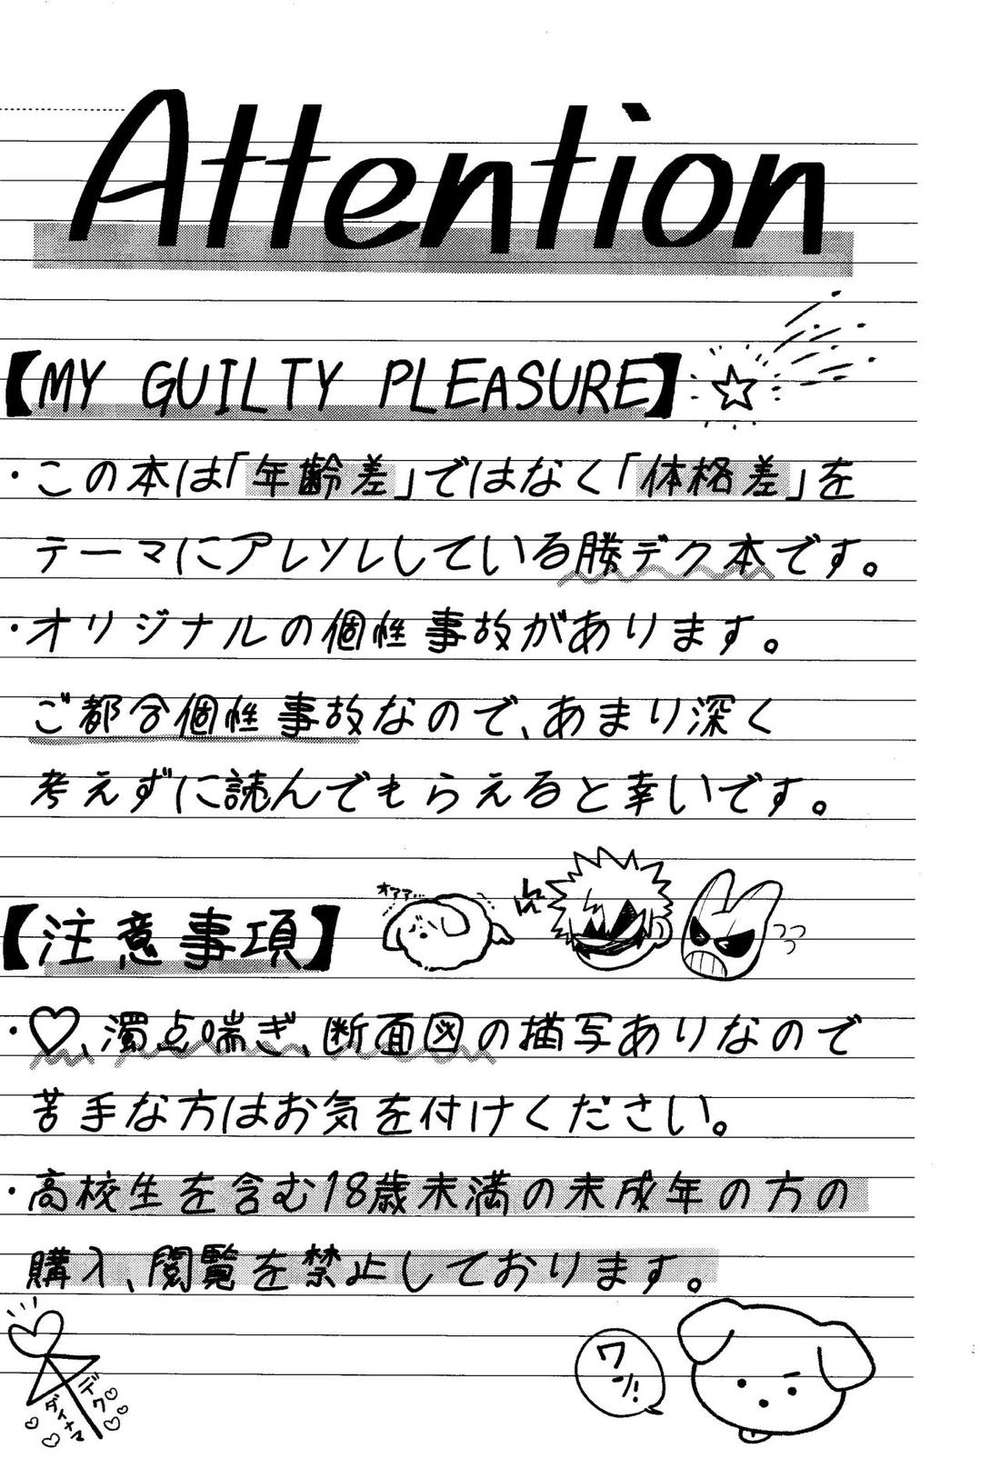 Attention
【MY GUILTY PLEASURE】
・この本は「年齢差」ではなく「体格差」を
テーマにアレソレしている勝デク本です。
・オリジナルの個性事故があります。
ご都合個性事故なので、あまり深く
考えずに読んでもらえると幸いです。
オアアア…
【注意事項】
・♡、濁点喘ぎ、断面図の描写ありなので
苦手な方はお気を付けください。
・高校生を含む18歳未満の未成年の方の
購入、閲覧を禁止しております。
デク
ダイナマ
ワン!